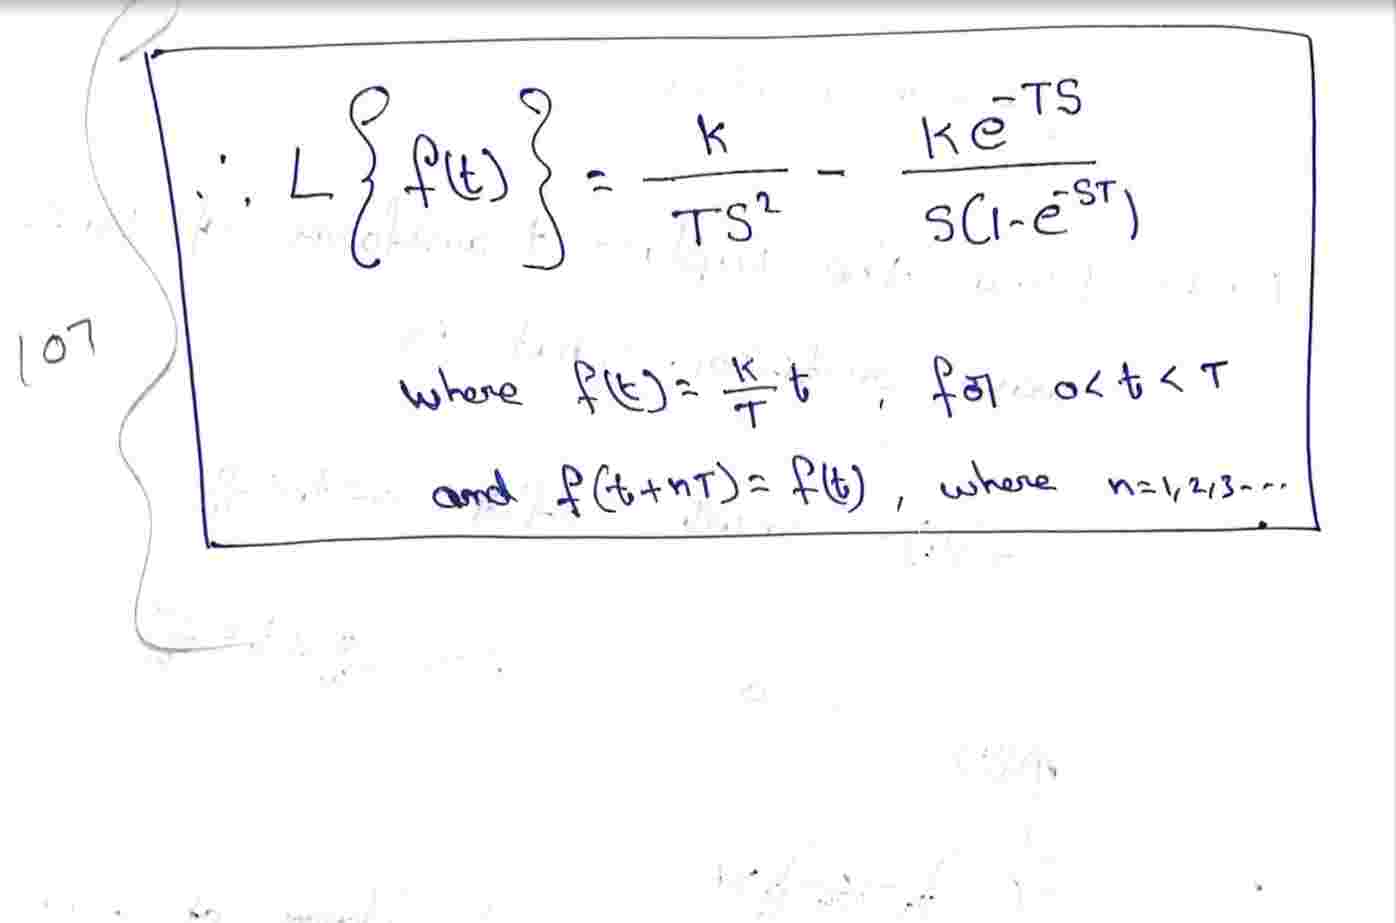 ∴ L{f(t)} = k/TS² - ke^-TS/S(1-e^-ST)
107
where f(t) = K/T t , for 0<t<T
and f(t+nT) = f(t) , where n=1,2,3----